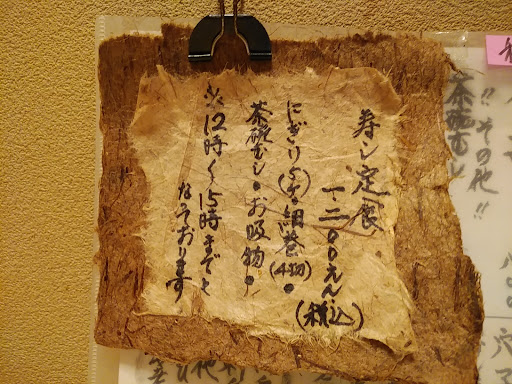 寿し定食
一二〇〇えん(税込)
にぎり5ヶ()・細巻(4切)・
茶碗むし・お吸物・
※12時〜15時までと
なっております
!!その他!!
茶碗むし
八〇〇
穴子